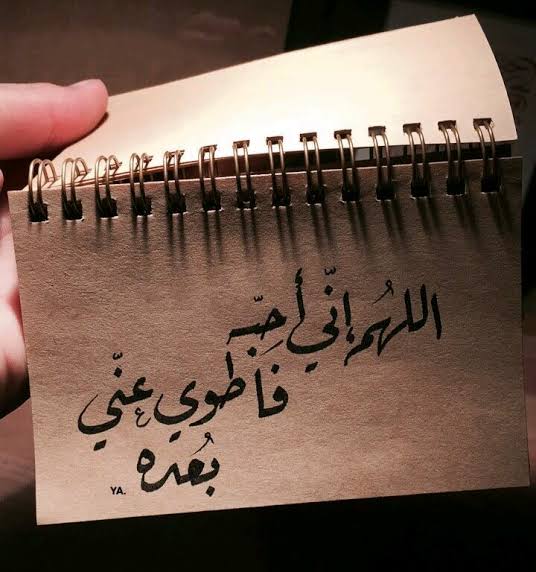 اللهُم إنّي أحبّه
فَاطوي عنّي
بُعده
YA.